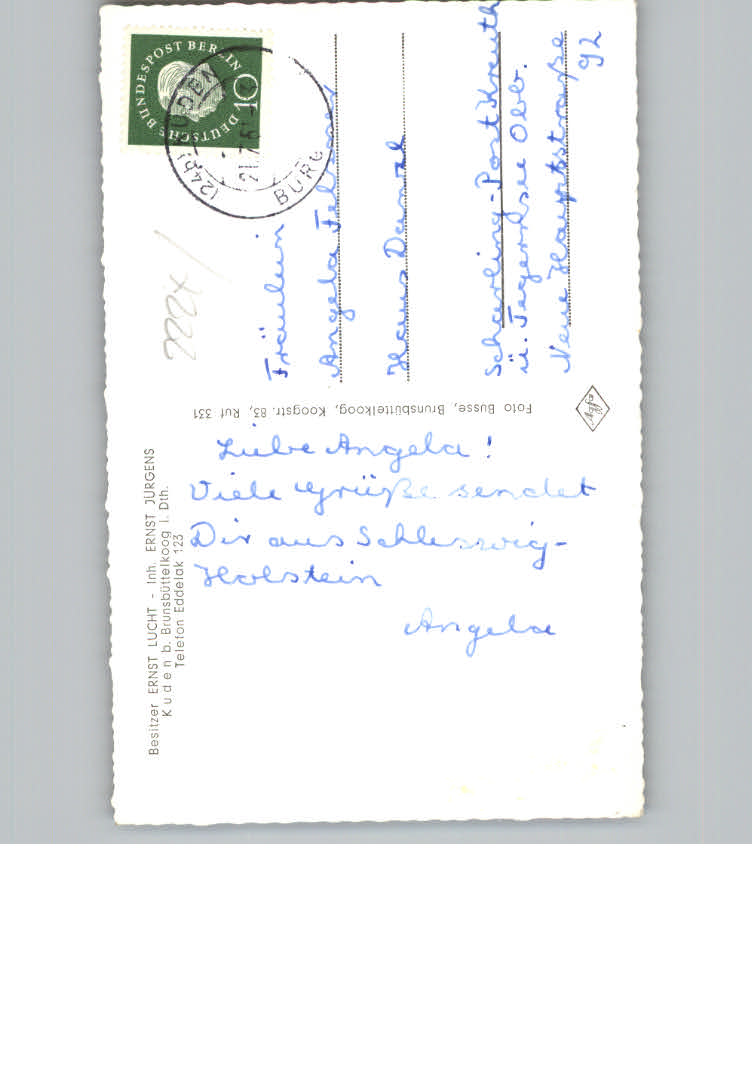 Besitzer ERNST LUCHT - Inh. ERNST JÜRGENS
Kuden b. Brunsbüttelkoog i. Dth.
Telefon Eddelak 123
Liebe Angela!
Viele Grüße sendet
Dir aus Schleswig-
Holstein
Angela
Foto Busse, Brunsbüttelkoog, Koogstr. 83, Ruf 331
Agfa
DEUTSCHE BUNDESPOST BERLIN
10
(24b) KUDEN
BURG
222x/
Fräulein
Angela
Haus Daniel
Scharling-Post Kreuth
ü. Tegernsee Obb.
Neue Hauptstraße
92